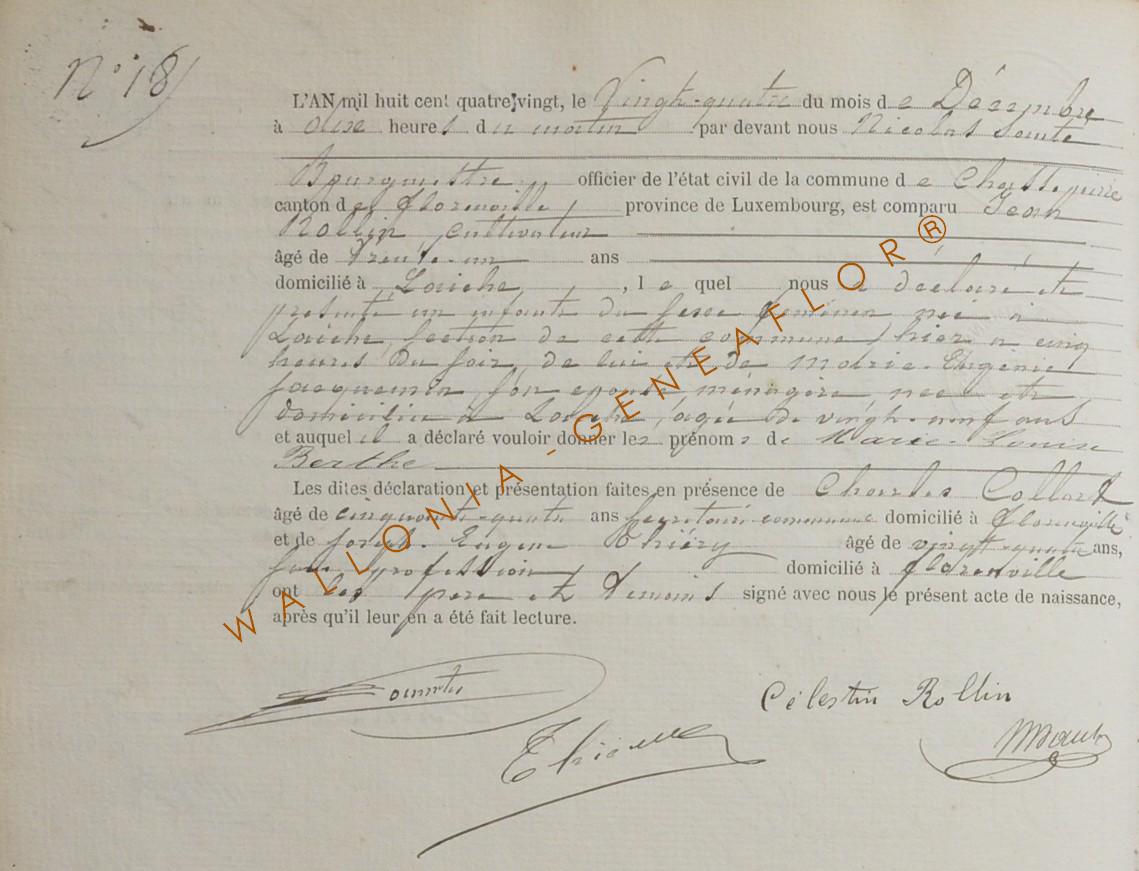 N° 18
L'AN mil huit cent quatre-vingt, le Vingt-quatre du mois de Décembre
à dixe heures du matin par devant nous Nicolas
Bourgmestre, officier de l'état civil de la commune de Chassepierre
canton de Florenville, province de Luxembourg, est comparu Jean
Rollin, cultivateur
âgé de trente-un ans
domicilié à Laiche, lequel nous a déclaré et
présenté un enfant du sexe féminin née à
Laiche section de cette commune, hier à cinq
heures du soir, de lui et de Marie-Eugénie
Jacquemin son épouse, ménagère née et
domiciliée à Laiche, agée de vingt-neuf ans
et auquel il a déclaré vouloir donner les prénoms de Marie-Louise
Berthe
Les dites déclaration et présentation faites en présence de Charles Collard
âgé de cinquante-quatre ans secrétaire communal domicilié à Florenville
et de Joseph-Eugène Thiéry âgé de vingt-quatre ans,
sans profession domicilié à Florenville
ont les père et témoins signé avec nous le présent acte de naissance,
après qu'il leur en a été fait lecture.
Célestin Rollin
WALLONIA - GENEAFLOR®